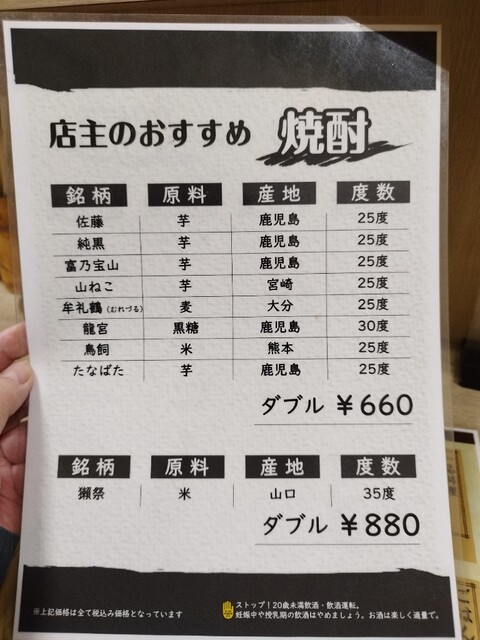 店主のおすすめ 焼酎
銘柄 原料 産地 度数
佐藤 芋 鹿児島 25度
純黒 芋 鹿児島 25度
富乃宝山 芋 鹿児島 25度
山ねこ 芋 宮崎 25度
牟礼鶴(むれづる) 麦 大分 25度
龍宮 黒糖 鹿児島 30度
鳥飼 米 熊本 25度
たなばた 芋 鹿児島 25度
ダブル ¥660
銘柄 原料 産地 度数
獺祭 米 山口 35度
ダブル ¥880
※上記価格は全て税込み価格となっています
ストップ!20歳未満飲酒・飲酒運転。
妊娠中や授乳期の飲酒はやめましょう。お酒は楽しく適量で。